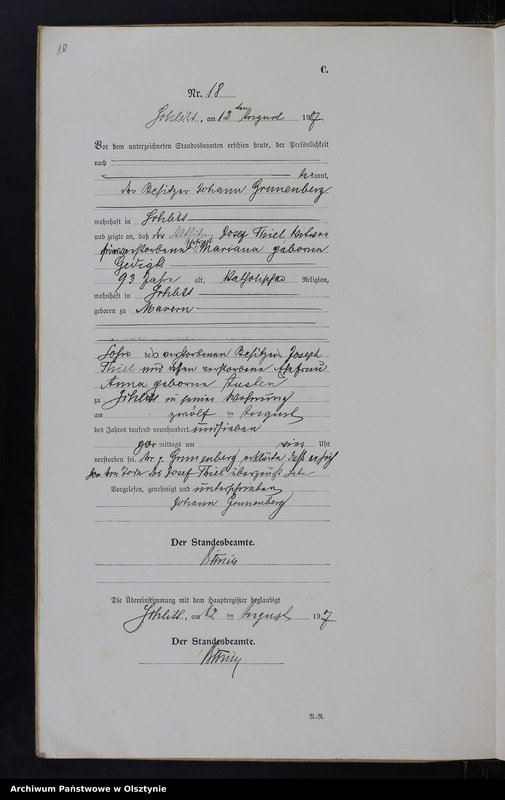 18
C.
Nr. 18
am 12 ten August 1907
Vor dem unterzeichneten Standesbeamten erschien heute, der Persönlichkeit
nach
bekannt,
der Besitzer Johann Grunenberg
wohnhaft in
und zeigte an, daß der Josef Thiel
verstorbenen Mariana geborene
93 Jahre alt, Katholischer Religion,
wohnhaft in
geboren zu Mavern
Sohn des verstorbenen Besitzers Joseph
Thiel und dessen verstorbene Ehefrau
Anna geborene Austen
zu in seiner Wohnung
am zwölf ten August
des Jahres tausend neunhundert und sieben
vor mittags um vier Uhr
verstorben sei. Der p. Grunenberg erklärte daß er sich
von dem Tode des Josef Thiel überzeugt habe
Vorgelesen, genehmigt und unterschrieben
Johann Grunenberg
Der Standesbeamte.
Die Übereinstimmung mit dem Hauptregister beglaubigt
am 12 ten August 1907
Der Standesbeamte.
N.-R.
Archiwum Państwowe w Olsztynie